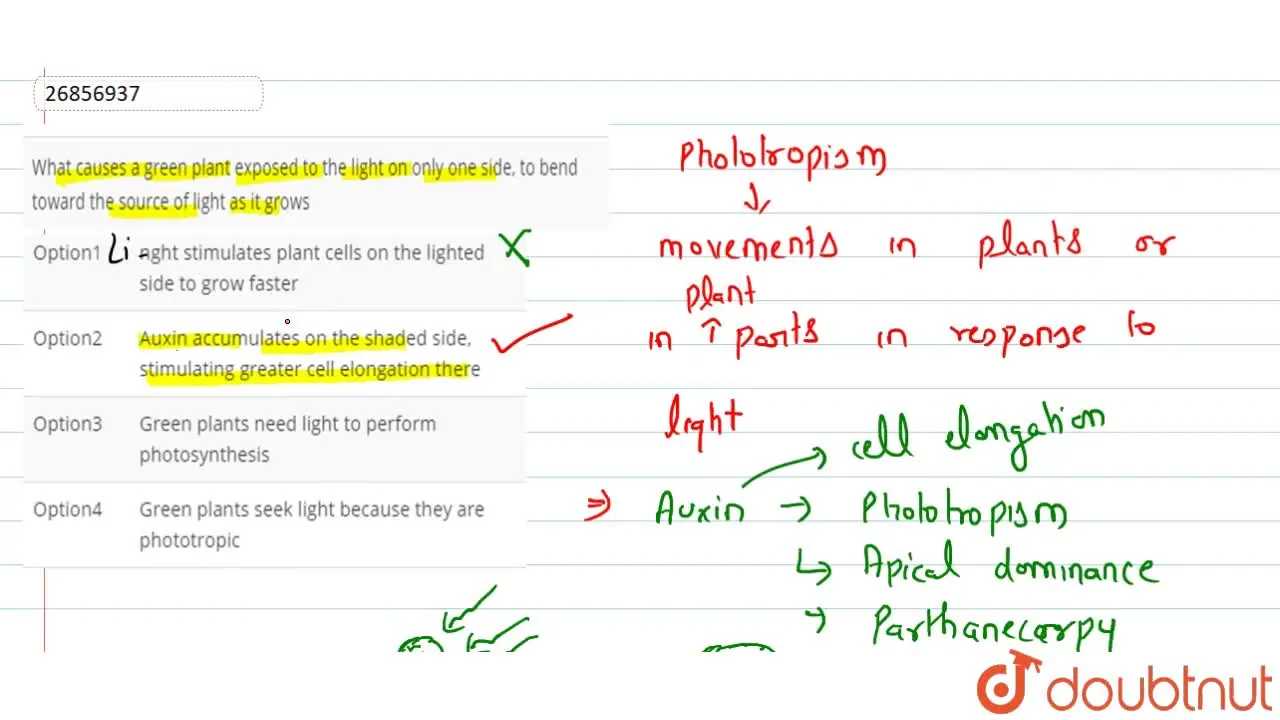 26856937
What causes a green plant exposed to the light on only one side, to bend
toward the source of light as it grows
Option1 Li-nght stimulates plant cells on the lighted
side to grow faster
Option2 Auxin accumulates on the shaded side,
stimulating greater cell elongation there
Option3 Green plants need light to perform
photosynthesis
Option4 Green plants seek light because they are
phototropic
Phototropism
movements in plants or
plant
in ↑ parts in response to
light
cell elongation
⇒ Auxin → Phototropism
↳ Apical dominance
→ Parthanecarpy
doubtnut